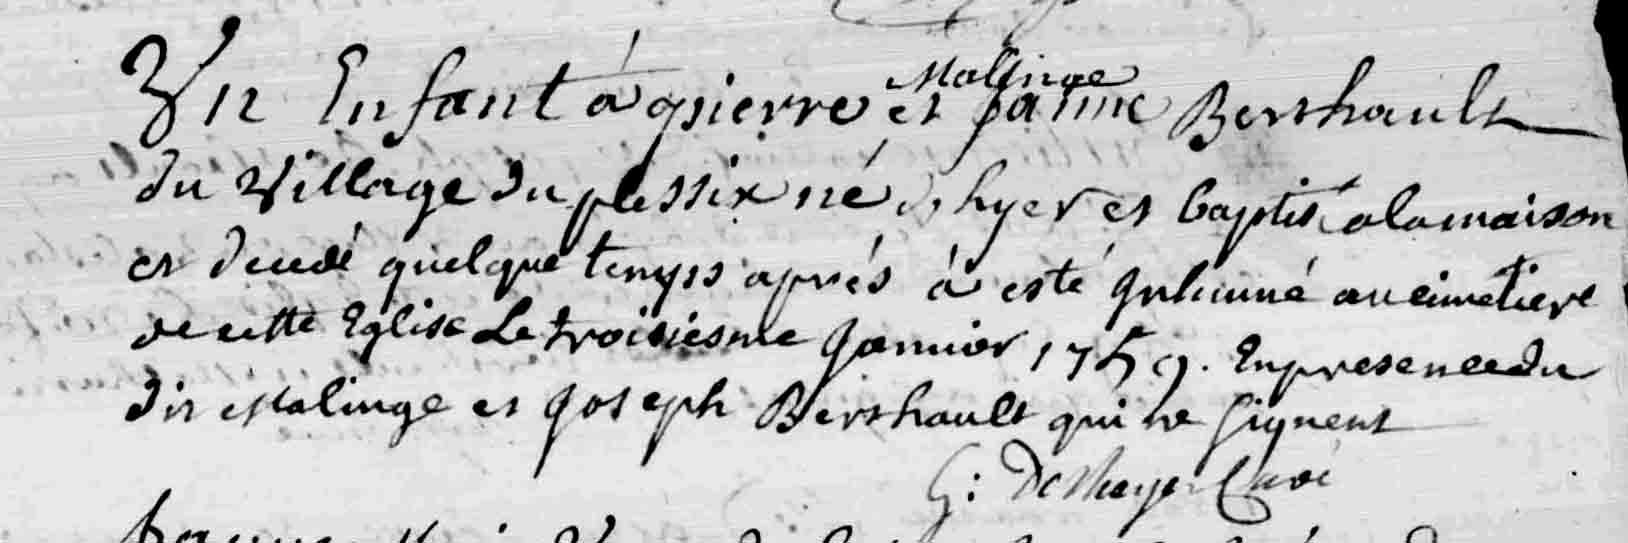 Malinge
Un Enfant à pierre et janne Berthault
du village du plessix né d'hyer et baptisé a la maison
et decedé quelque temps aprés à esté Inhumé au cimetiere
de cette Eglise Le troisiesme Janvier 1759. En presence du
dit Malinge et Joseph Berthault qui ne signent
G: